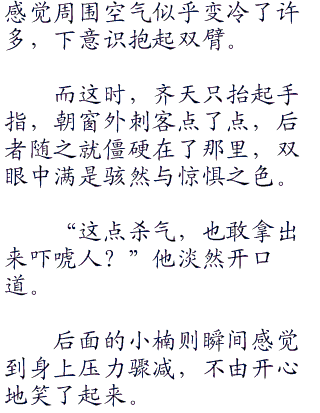 感觉周围空气似乎变冷了许
多，下意识抱起双臂。
而这时，齐天只抬起手
指，朝窗外刺客点了点，后
者随之就僵硬在了那里，双
眼中满是骇然与惊惧之色。
“这点杀气，也敢拿出
来吓唬人？”他淡然开口
道。
后面的小楠则瞬间感觉
到身上压力骤减，不由开心
地笑了起来。